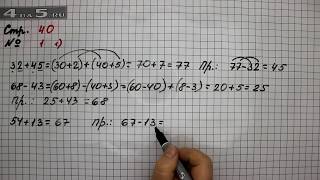 4 на 5.ru
Стр. 40
№ 1 1)
32+45=(30+2)+(40+5)=70+7=77 Пр.: 77-32=45
68-43=(60+8)-(40+3)=(60-40)+(8-3)=20+5=25
Пр.: 25+43=68
54+13=67 Пр.: 67-13=